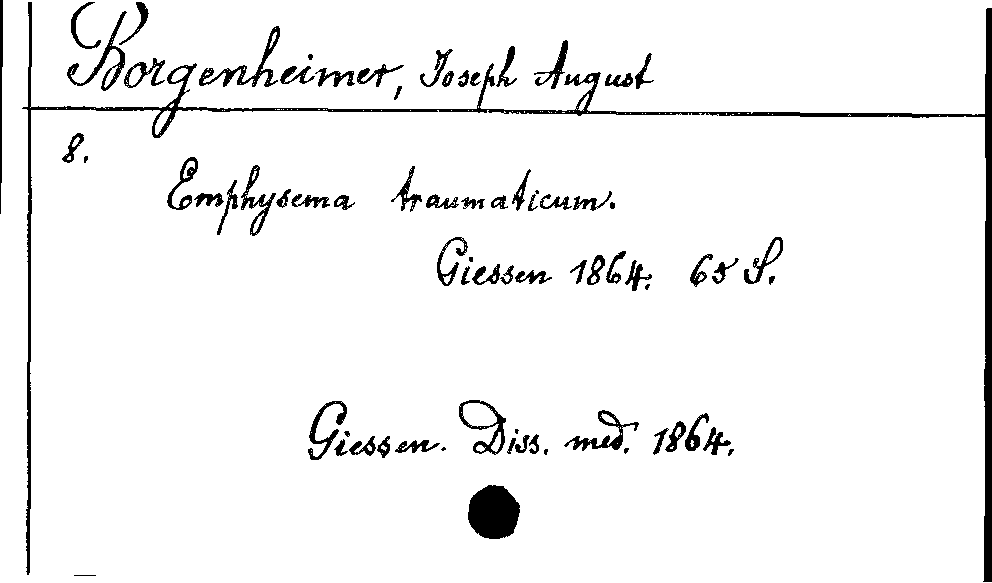 Borgenheimer, Joseph August
8.
Emphysema traumaticum.
Giessen 1864. 65 S.
Giessen. Diss. med. 1864.